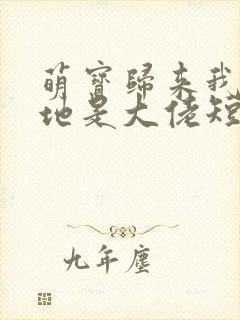 萌寶歸来我
地是大佬短
九年塵